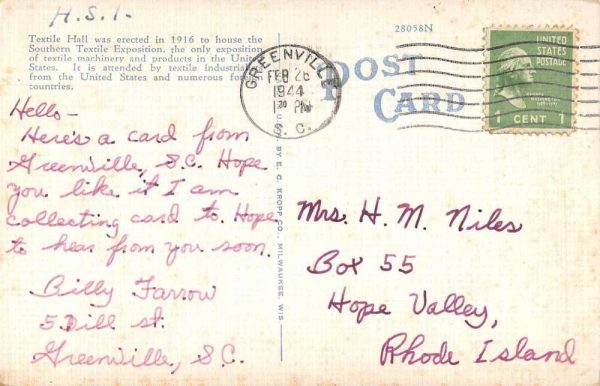 H.S.I.
Textile Hall was erected in 1916 to house the
Southern Textile Exposition, the only exposition
of textile machinery and products in the United
States. It is attended by textile industrialists
from the United States and numerous foreign
countries.
Hello-
Here's a card from
Greenville, S.C. Hope
you like it I am
collecting card to. Hope
to hear from you soon.
Billy Farrow
5 Dill st.
Greenville, S.C.
BY E. C. KROPP CO., MILWAUKEE, WIS.
28058N
POST
CARD
GREENVILLE
FEB 26
1944
PM
S. C.
UNITED
STATES
POSTAGE
1 CENT 1
Mrs. H. M. Niles
Box 55
Hope Valley,
Rhode Island